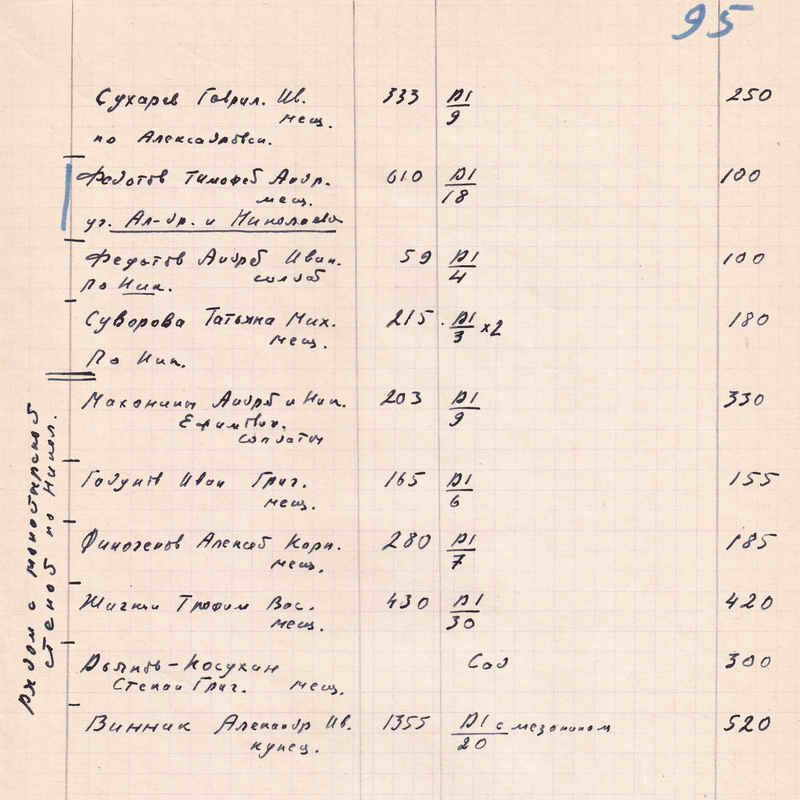 95
Сухарев Гаврил. Ив. 333 Д1/9 250
мещ.
по Александровск.
Федотов Тимофей Андр. 610 Д1/18 100
мещ.
уг. Ал-др. и Николаевс
Федотов Андрей Иван. 59 Д1/4 100
солдат
По Ник.
Суворова Татьяна Мих. 215 Д1/3 x2 180
мещ.
По Ник.
Махонины Андрей и Ник. 203 Д1/9 330
Ефимович.
солдаты
Годунов Иван Григ. 165 Д1/6 155
мещ.
Финогенов Алексей Корн. 280 Д1/7 185
мещ.
Шигин Трофим Вас. 430 Д1/30 420
мещ.
Косухин Сад 300
Степан Григ. мещ.
Винник Александр Ив. 1355 Д1/20 с мезонином 520
купец.
рядом с монастырской
стеной по Никол.